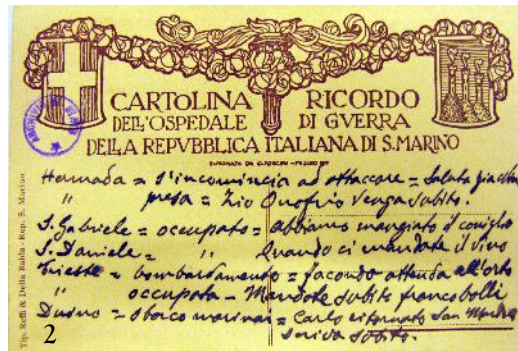 CARTOLINA RICORDO
DELL'OSPEDALE DI GVERRA
DELLA REPVBBLICA ITALIANA DI S. MARINO
Hermada = s'incomincia ad attaccare = Salata
" presa = Zio Onofrio venga subito.
S. Gabriele = occupato = abbiamo mangiato il coniglio
S. Daniele = " Quando ci mandate il vino
Trieste = bombardamento = facondo attenda all'orto
" occupata = Mandate subito francobolli
Duino = sbarco marinai = Carlo ritornato San
scriva subito.
Tip. Reffi & Della Balda - Rep. S. Marino
2